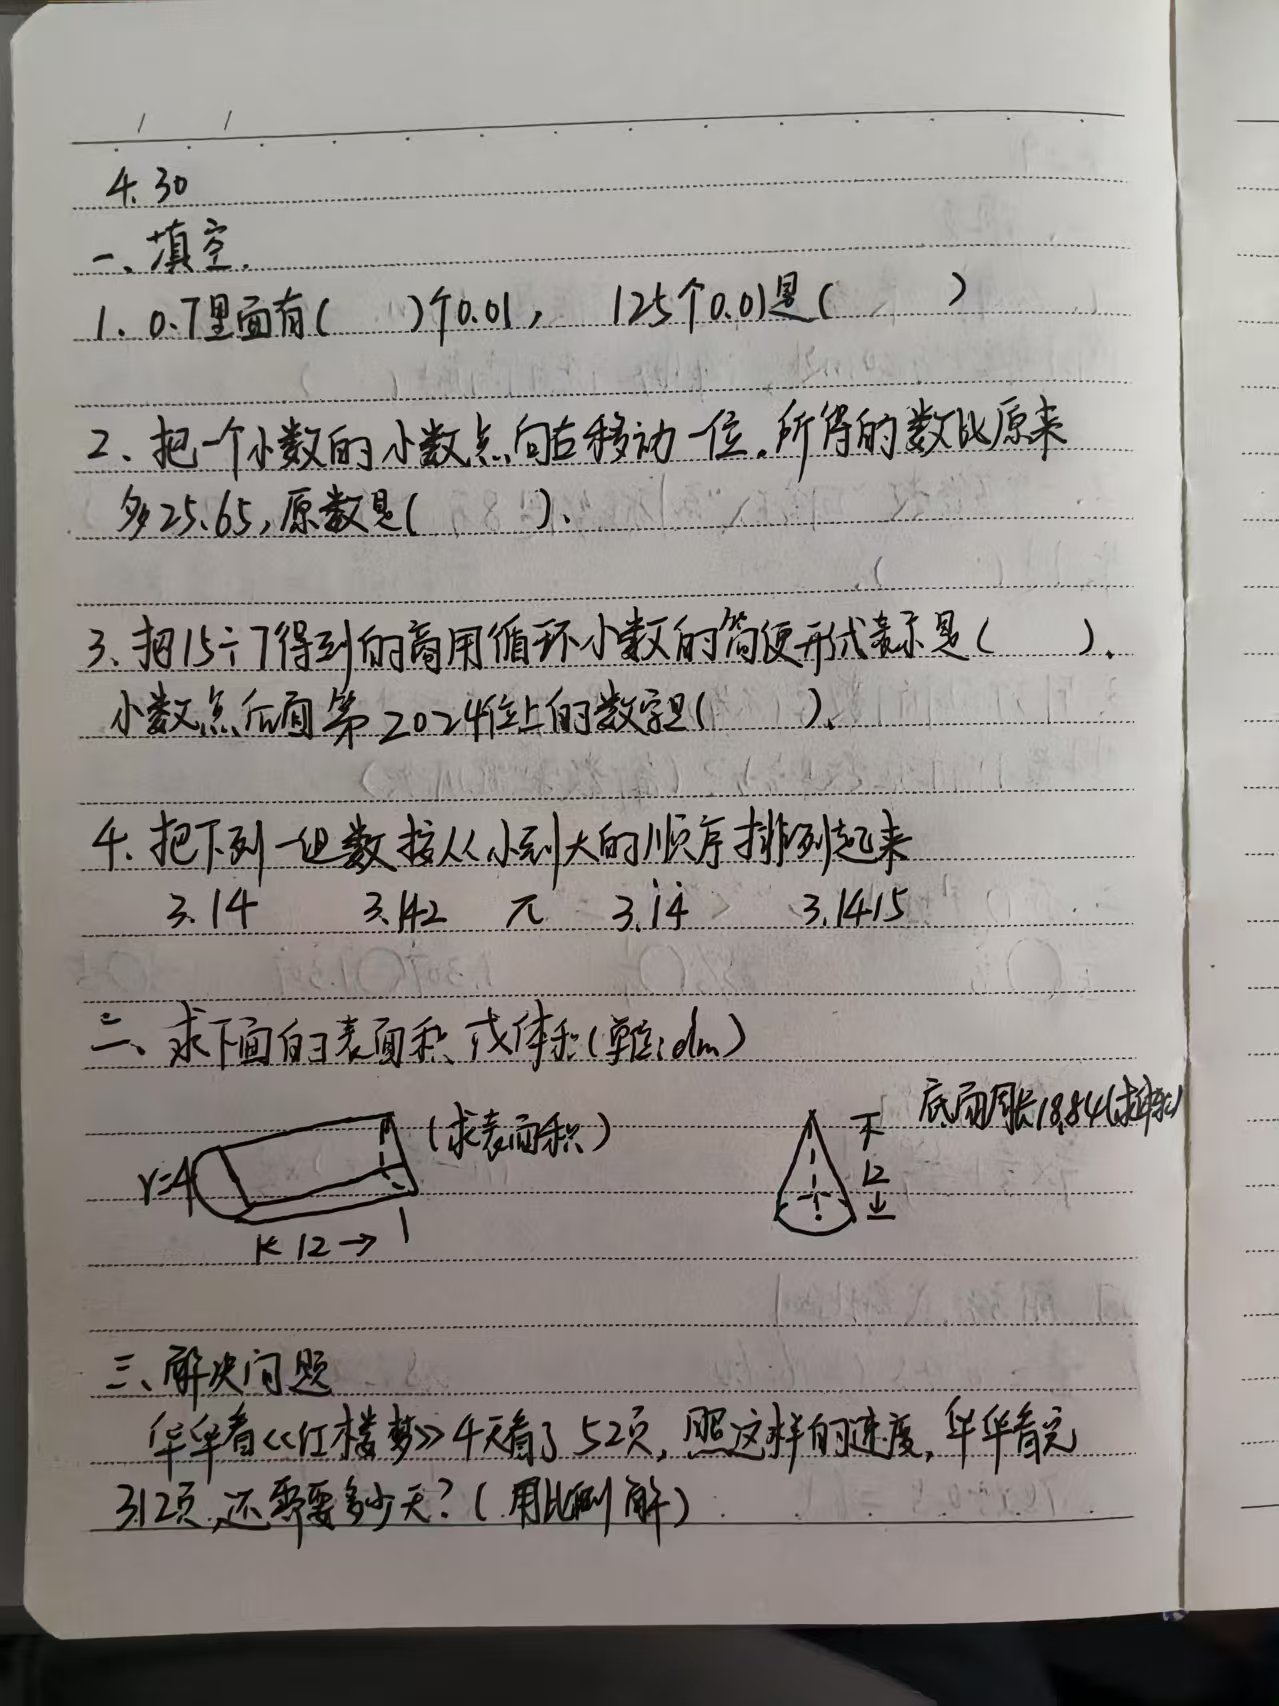 4.30
一、填空.
1. 0.7里面有(  )个0.01, 125个0.01是(  )
2、把一个小数的小数点向右移动一位,所得的数比原来
多25.65,原数是(  ).
3、把15÷7得到的商用循环小数的简便形式表示是(  ).
小数点后面第2024位上的数字是(  ).
4. 把下列一组数按从小到大的顺序排列起来
3.14 3.142 π 3.1̇4̇ 3.1415
二、求下面的表面积或体积(单位:dm)
(求表面积)
底面周长18.84(求体积)
r=4
12
12
三、解决问题
华华看《红楼梦》4天看了52页,照这样的速度,华华看完
312页,还需要多少天?(用比例解)